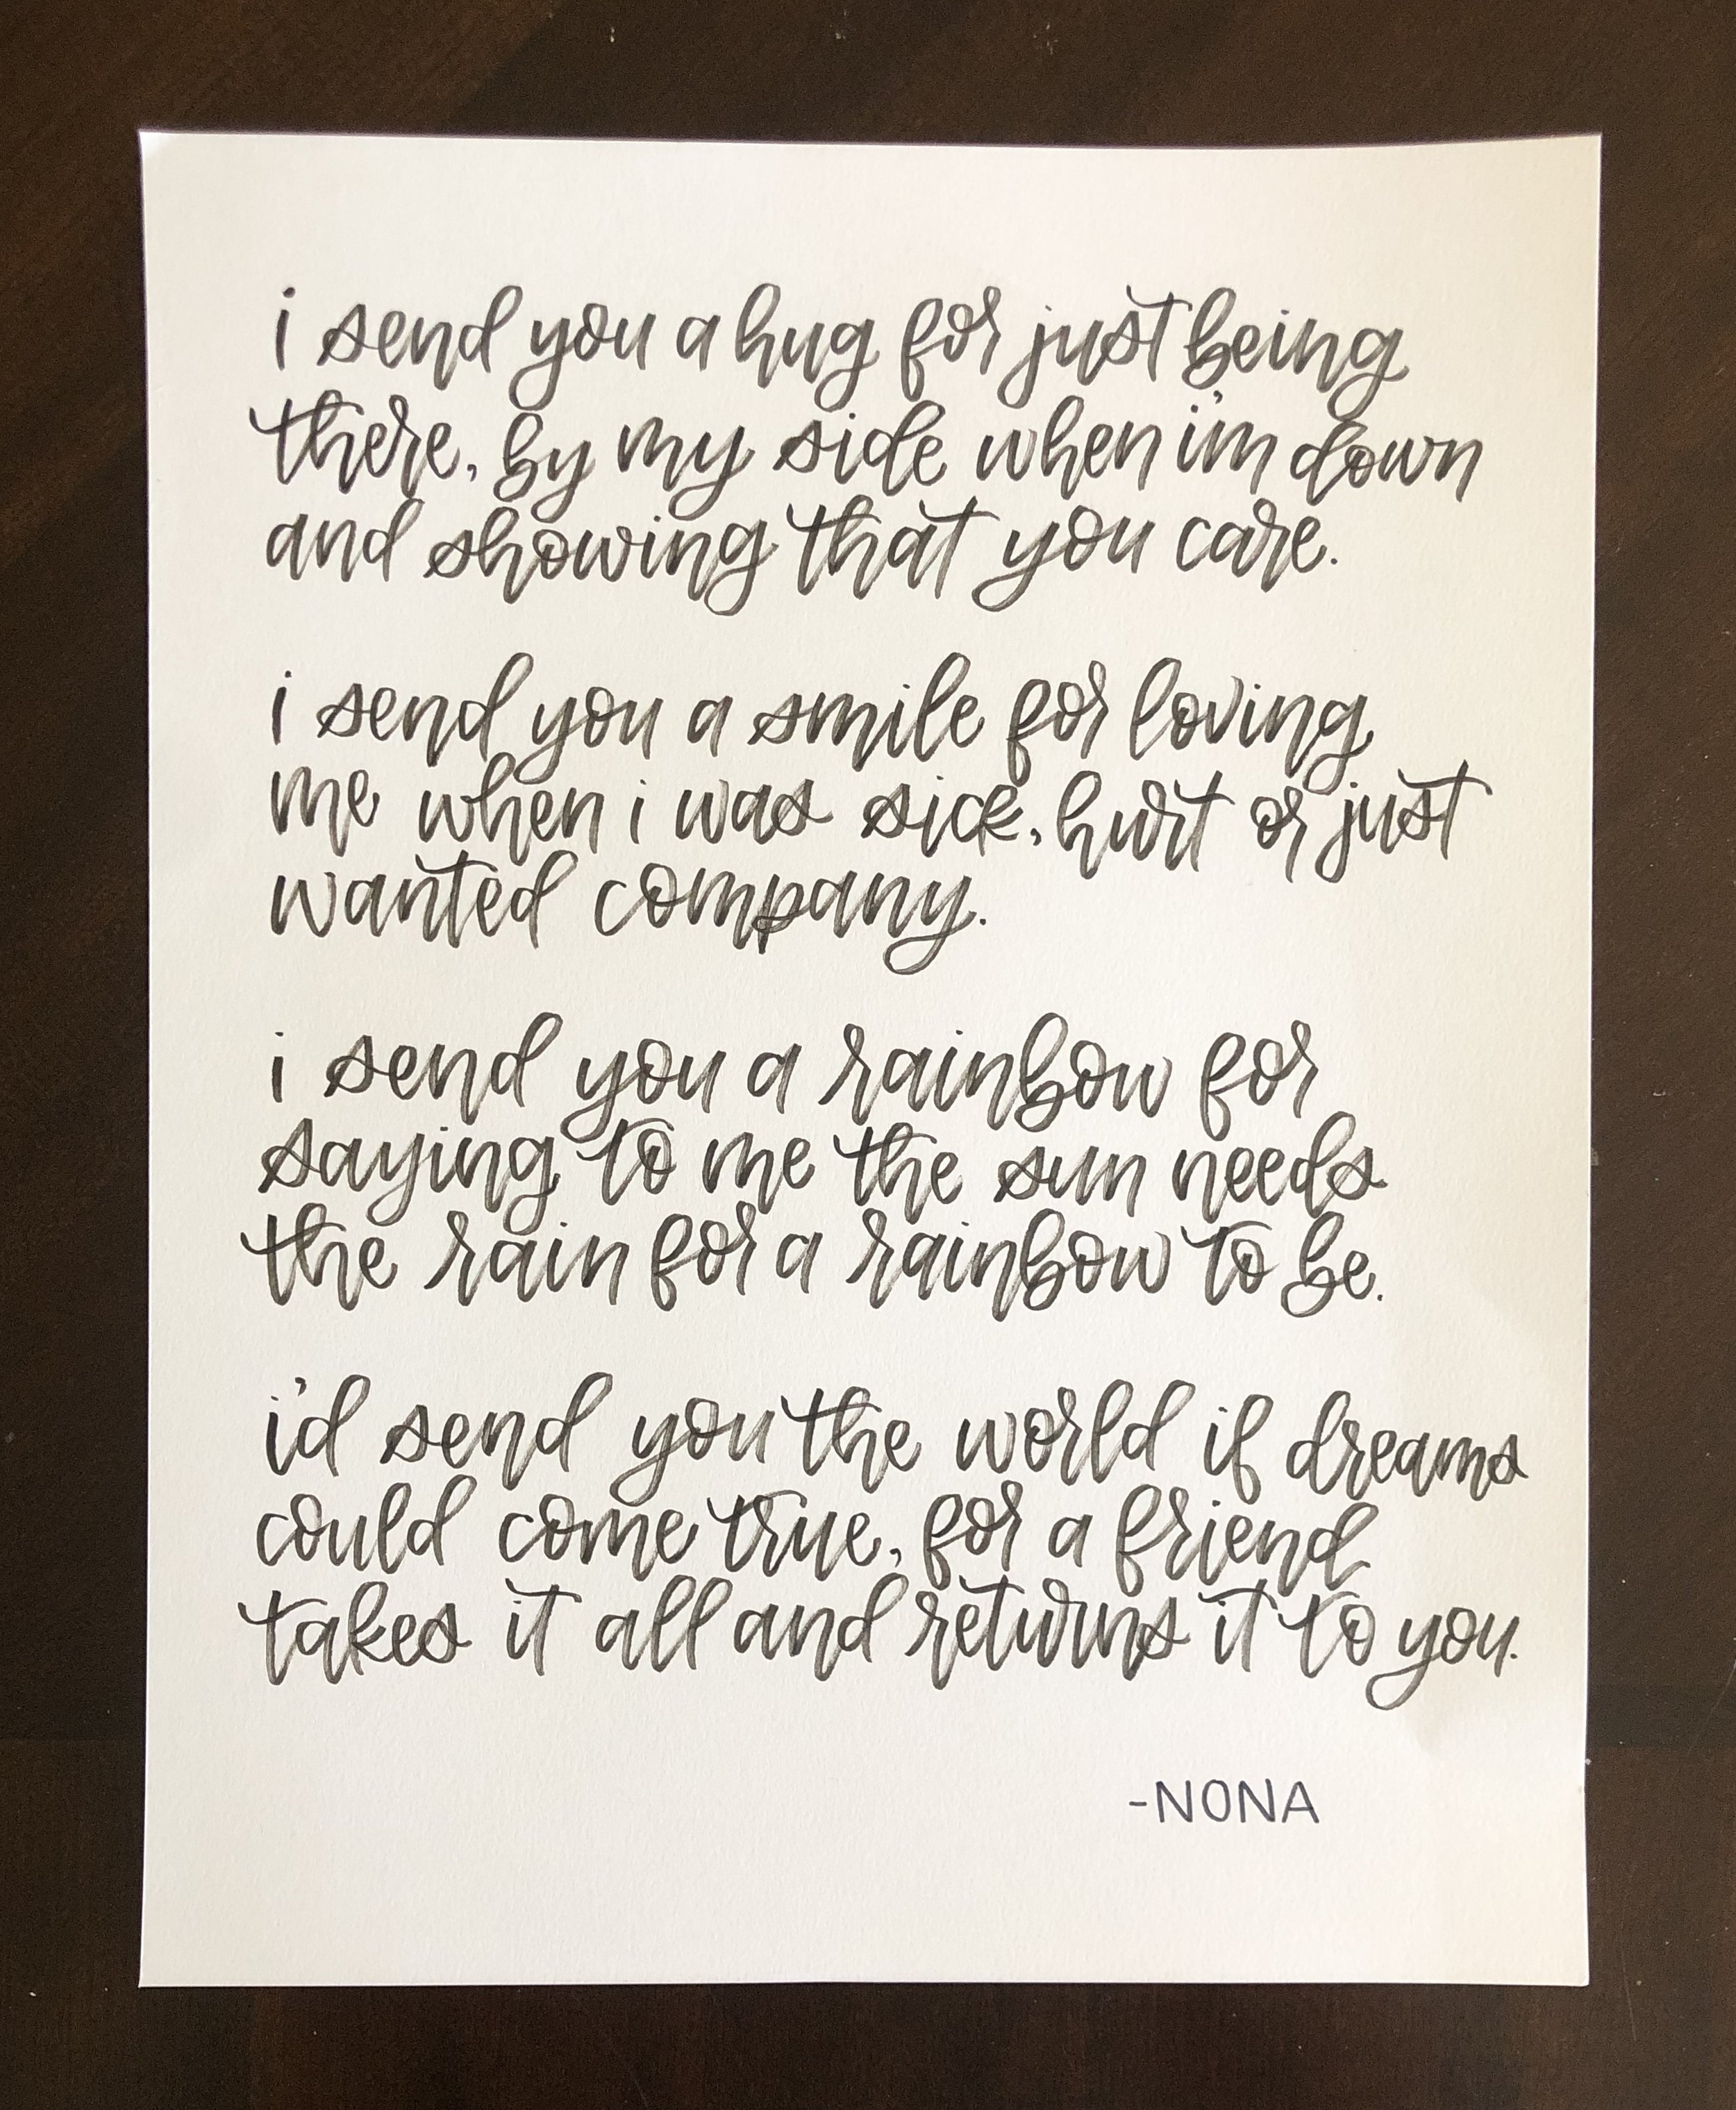 i send you a hug for just being
there, by my side when i'm down
and showing that you care.
i send you a smile for loving
me when i was sick, hurt or just
wanted company.
i send you a rainbow for
saying to me the sun needs
the rain for a rainbow to be.
i'd send you the world if dreams
could come true, for a friend
takes it all and returns it to you.
-NONA